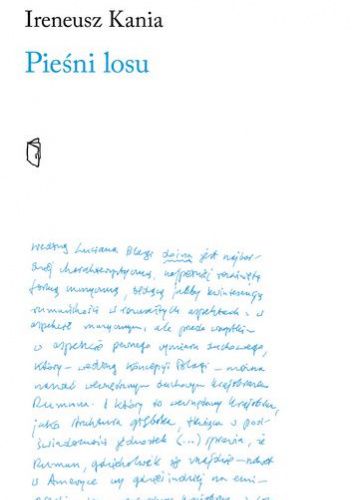 Ireneusz Kania
Pieśni losu
według Luciana Blagi doina jest najbar-
dziej charakterystyczną, najpełniej rozwiniętą
formą muzyczną, będącą jakby kwintesencją
rumuńskości w rozmaitych aspektach: w
aspekcie muzycznym, ale przede wszystkim
w aspekcie pewnego wymiaru duchowego,
który – według koncepcji Blagi – można
nazwać wewnętrznym duchowym krajobrazem
Rumuna. I który to wewnętrzny krajobraz,
jako struktura głęboka, tkwiąca w pod-
świadomości jednostek (...) sprawia, że
Rumun, gdziekolwiek się znajdzie – nawet
w Ameryce czy gdzie indziej na emi-